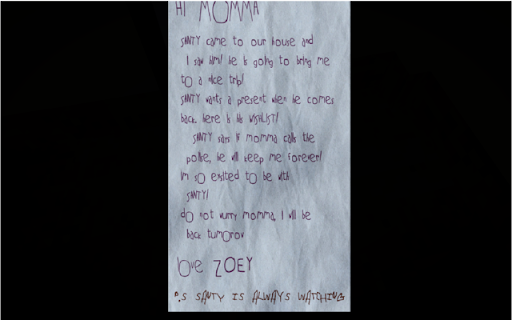 HI MOMMA
SANTY came to our house and
I saw him! he is going to bring me
to a nice trip!
SANTY wants a present when he comes
back. here is his WISHLIST!
SANTY says if momma calls the
police, he will keep me forever!
im so exited to be with
SANTY!
do not wurry momma, I will be
back tumorow
love ZOEY
P.S SANTY IS ALWAYS WATCHING